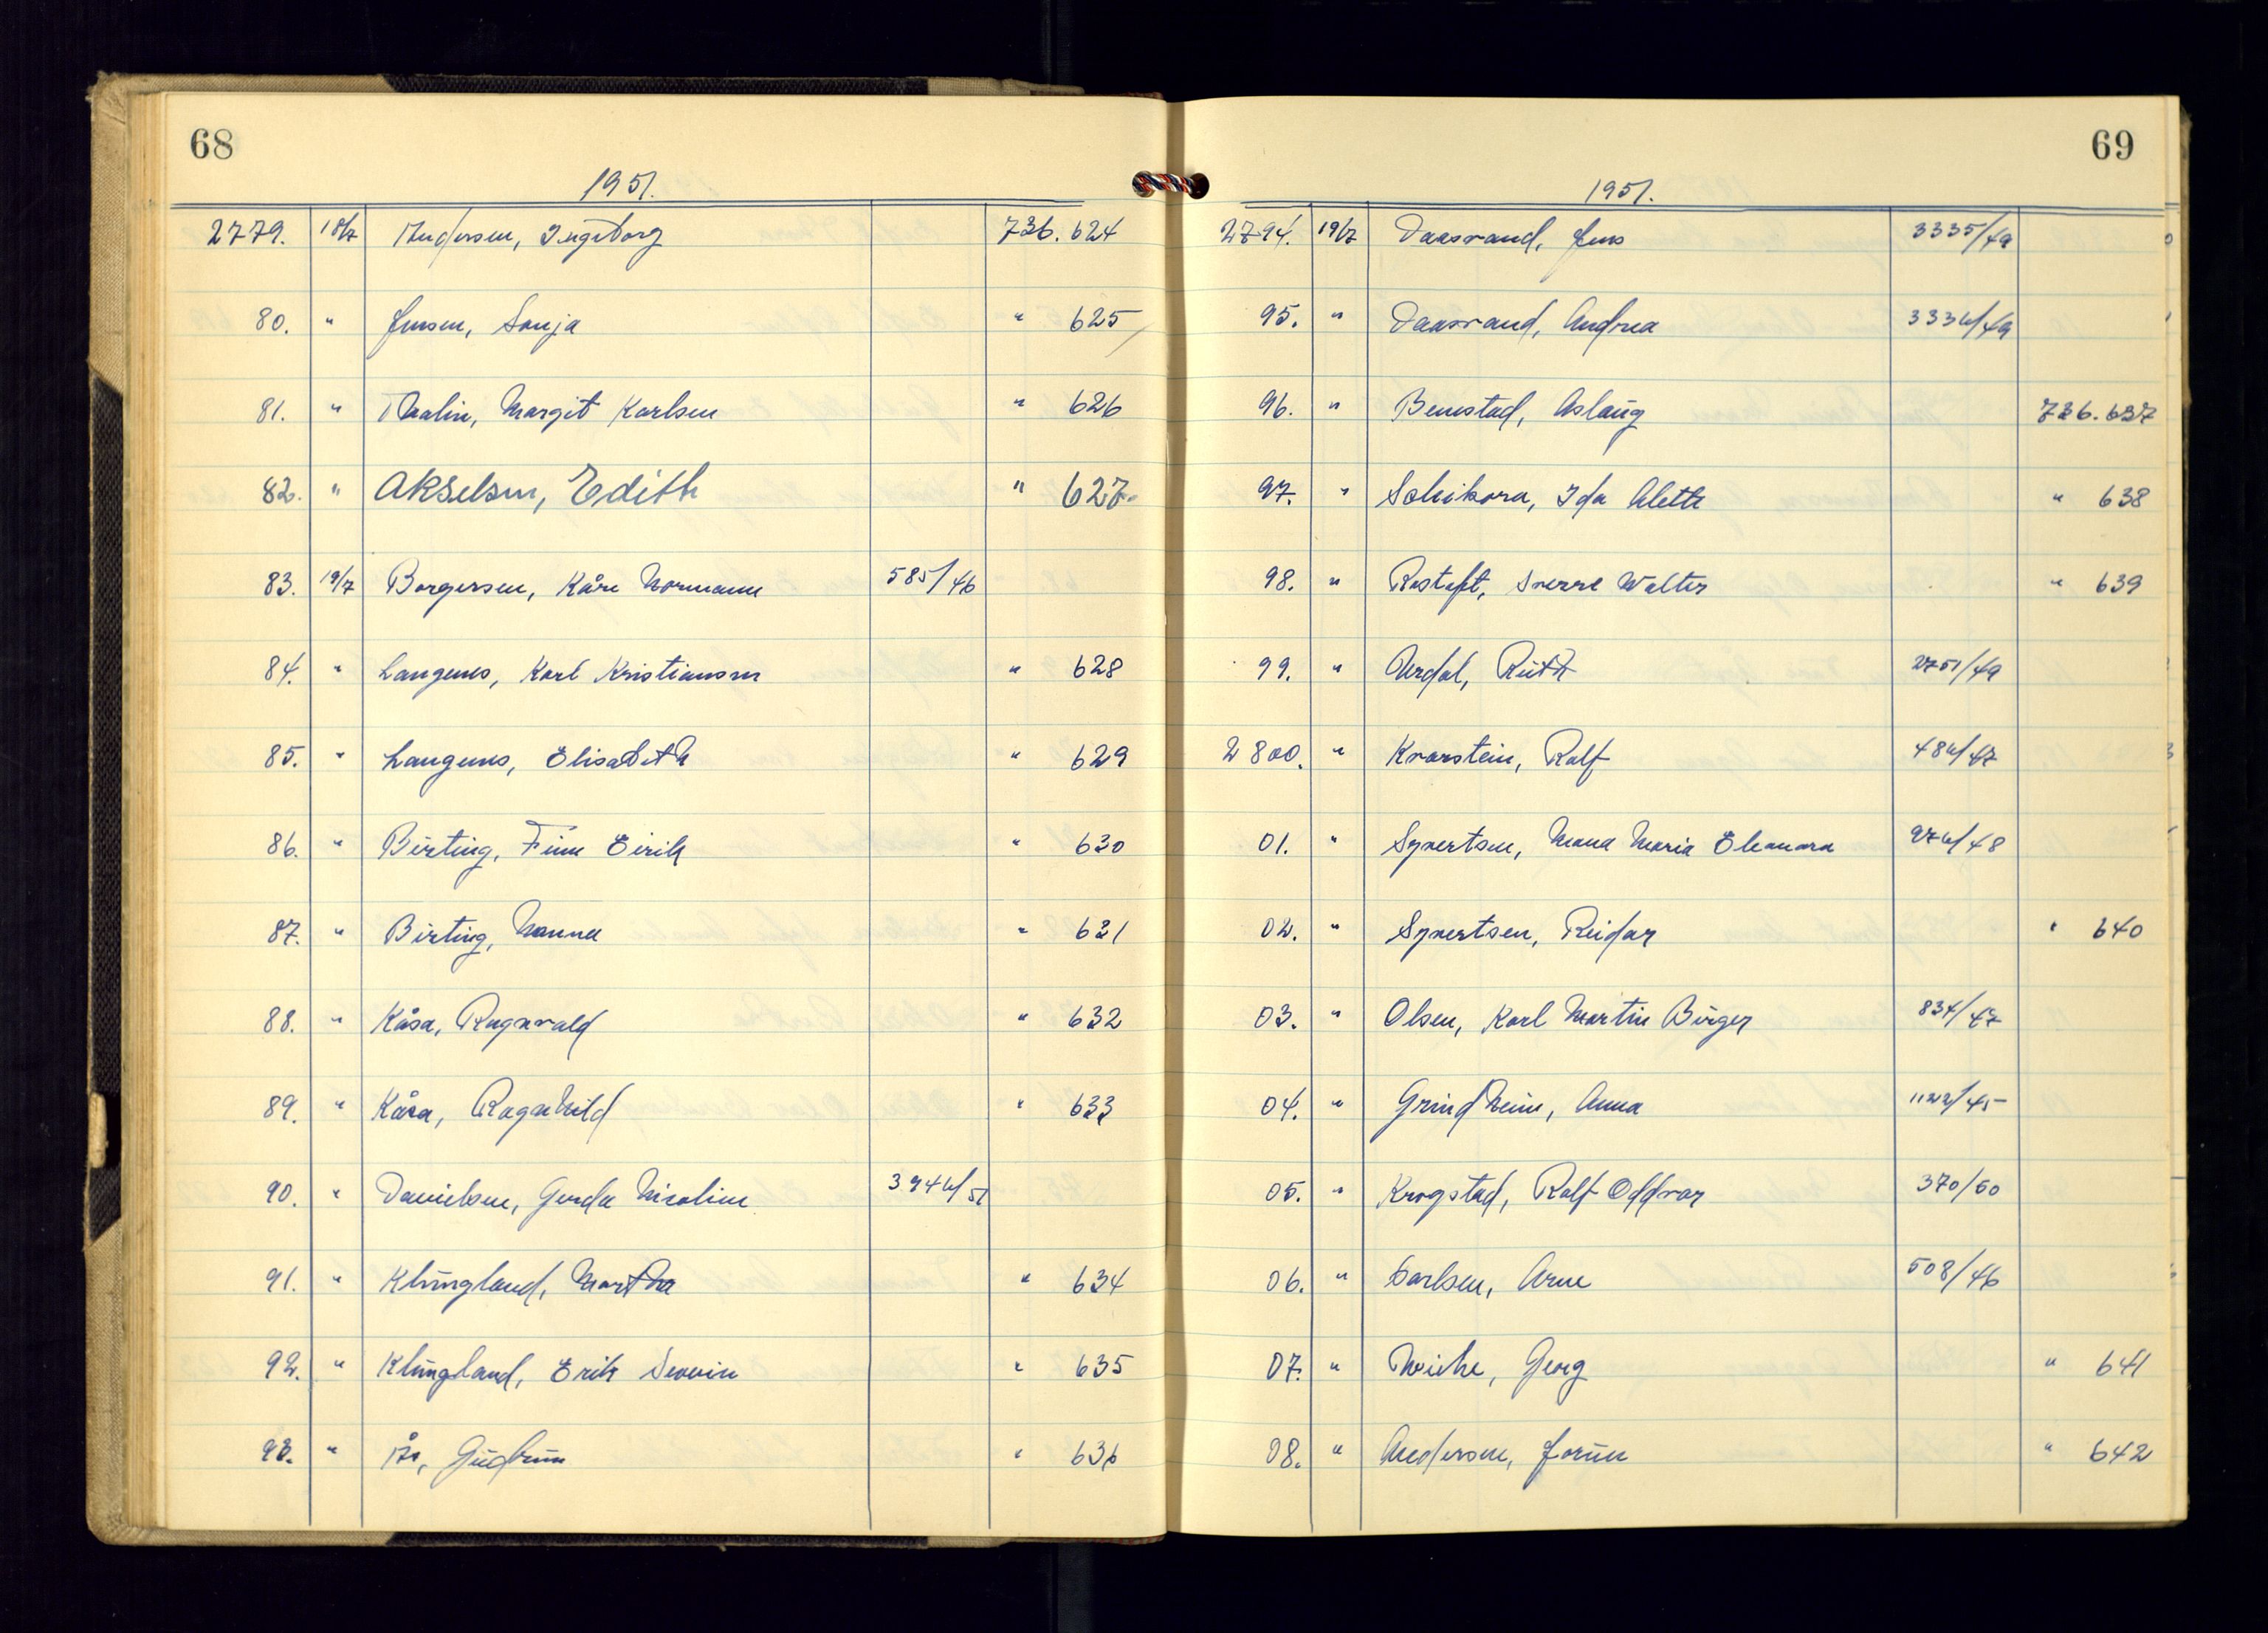 68
1951.
2779. 18/7 Andersen, Ingeborg 736.624
80. " Jensen, Sonja " 625
81. " Thalin, Margit Karlsen " 626
82. " Akselsen, Edith " 627.
83. 19/7 Borgersen, Kåre Normann 585/46
84. " Langenes, Karl Kristiansen " 628
85. " Langenes, Elisabeth " 629
86. " Birting, Finn Eirik " 630
87. " Birting, Nanna " 631
88. " Kåsa, Ragnvald " 632
89. " Kåsa, Ragnhild " 633
90. " Danielsen, Gerda Nicoline 3942/51
91. " Klungland, Martha " 634
92. " Klungland, Erik Severin " 635
93. " Ås, Gudrun " 636
69
1951.
2794. 19/7 Daasvand, Jens 3335/49
95. " Daasvand, Andrea 3332/49
96. " Benestad, Aslaug 736.637
97. " Schikora, Ida Aleth " 638
98. " Rostoft, Sverre Walter " 639
99. " Urdal, Ruth 2751/49
2800. " Kvarstein, Rolf 482/47
01. " Syvertsen, Mana Maria Eleonora 972/48
02. " Syvertsen, Reidar " 640
03. " Olsen, Karl Martin Birger 834/47
04. " Grindheim, Anna 1122/45
05. " Krogstad, Rolf Oddvar 370/50
06. " Carlsen, Arne 508/46
07. " Wiche, Georg " 641
08. " Andersen, Jorun " 642